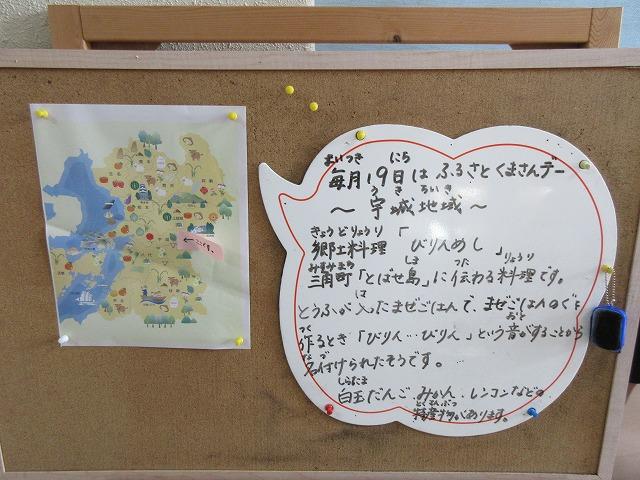 まいつき にち
毎月19日は ふるさとくまさんデー
うき ちいき
～宇城地域～
きょうどりょうり
郷土料理「びりんめし」
みすみまち しま つた りょうり
三角町「とばせ島」に伝わる料理です。
は
とうふが入ったまぜごはんで、まぜごはんのぐを
つく おと
作るとき「びりん…びりん」という音がすることから
なづ
名付けられたそうです。
しらたま
白玉だんご、みかん、レンコンなどの
とくさんぶつ
特産物があります。